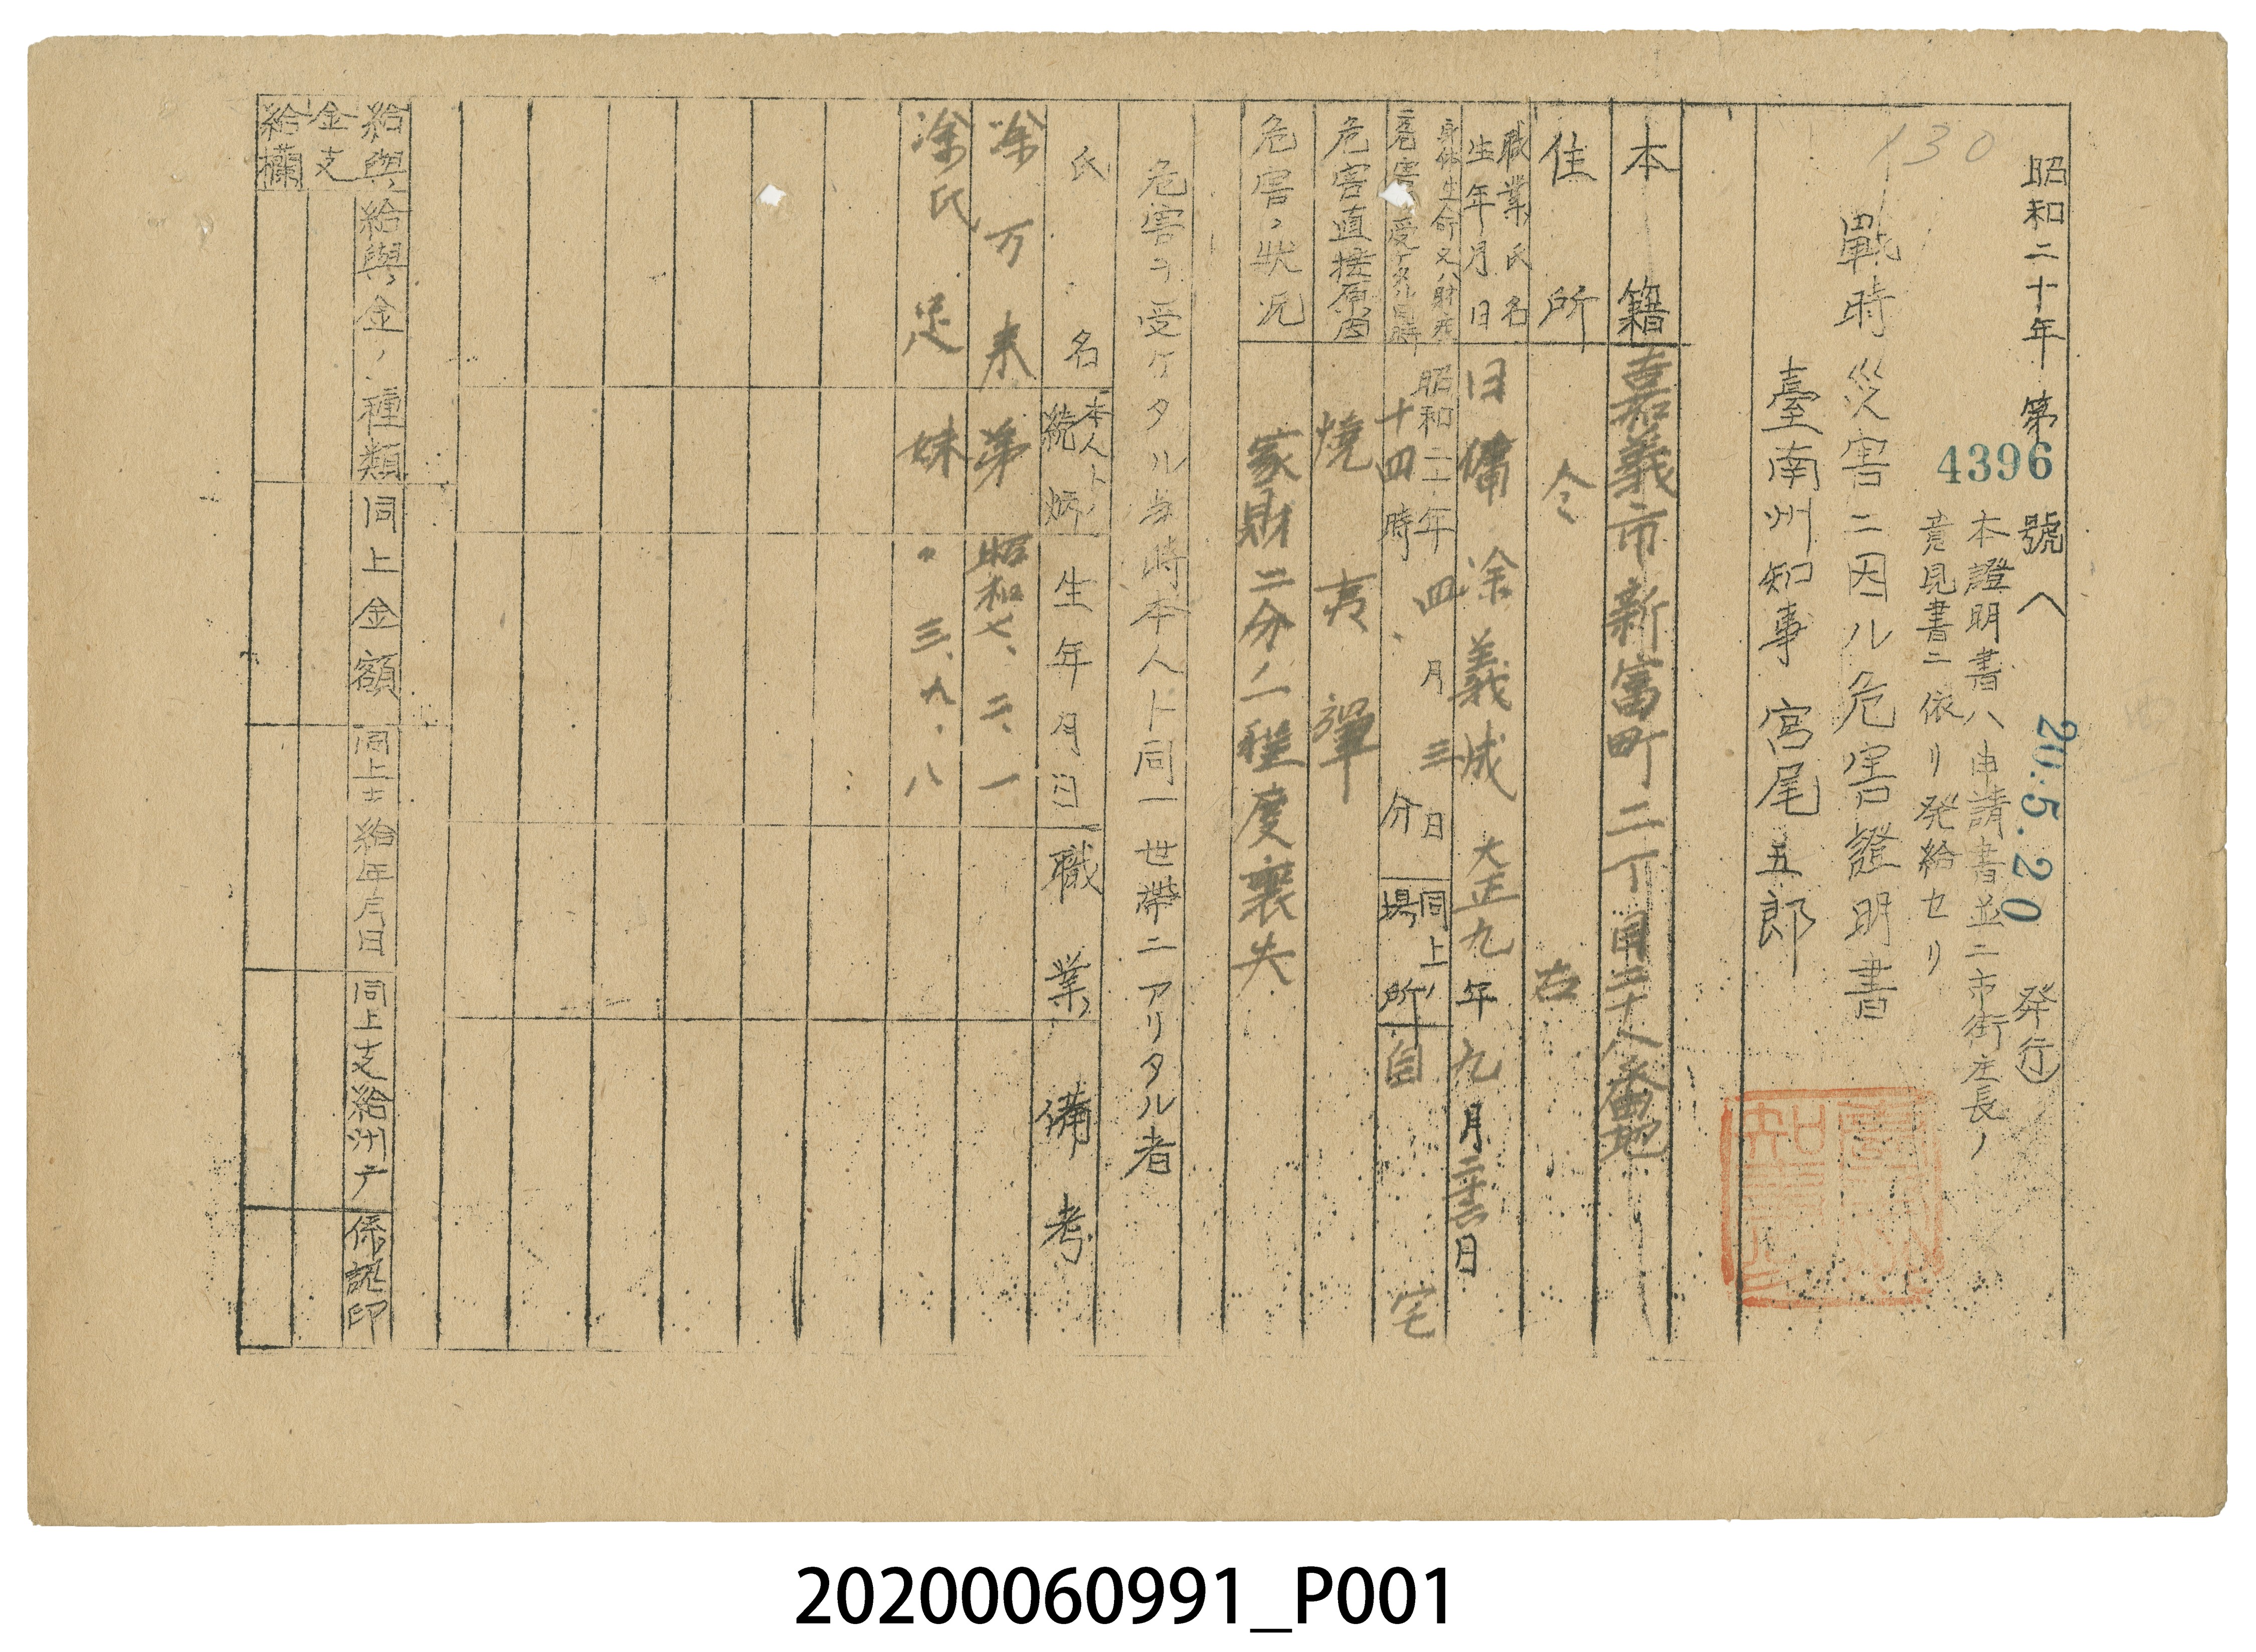 昭和二十年第4396號 (20.5.20 発行)
本證明書ハ申請書並ニ市街庄長ノ
意見書ニ依リ発給セリ
130
戰時災害ニ因ル危害證明書
臺南州知事 宮尾五郎
本籍 嘉義市新富町二丁目三十八番地
住所 仝 右
職業氏名 生年月日 日傭 凃義成 大正九年九月二十六日
身体生命又ハ財産ニ危害ヲ受ケタル日時 昭和二十年四月三日十四時 分 同上ノ場所 自宅
危害直接原因 燒夷彈
危害ノ狀況 家財二分ノ一程度喪失
危害ヲ受ケタル当時本人ト同一世帶ニアリタル者
氏名 本人トノ続柄 生年月日 職業 備考
凃万来 弟 昭和七、二、一
凃氏足 妹 〃 三、九、八
給與金支給欄
給與金ノ種類 同上金額 同上支給年月日 同上支給州庁 係認印
20200060991_P001